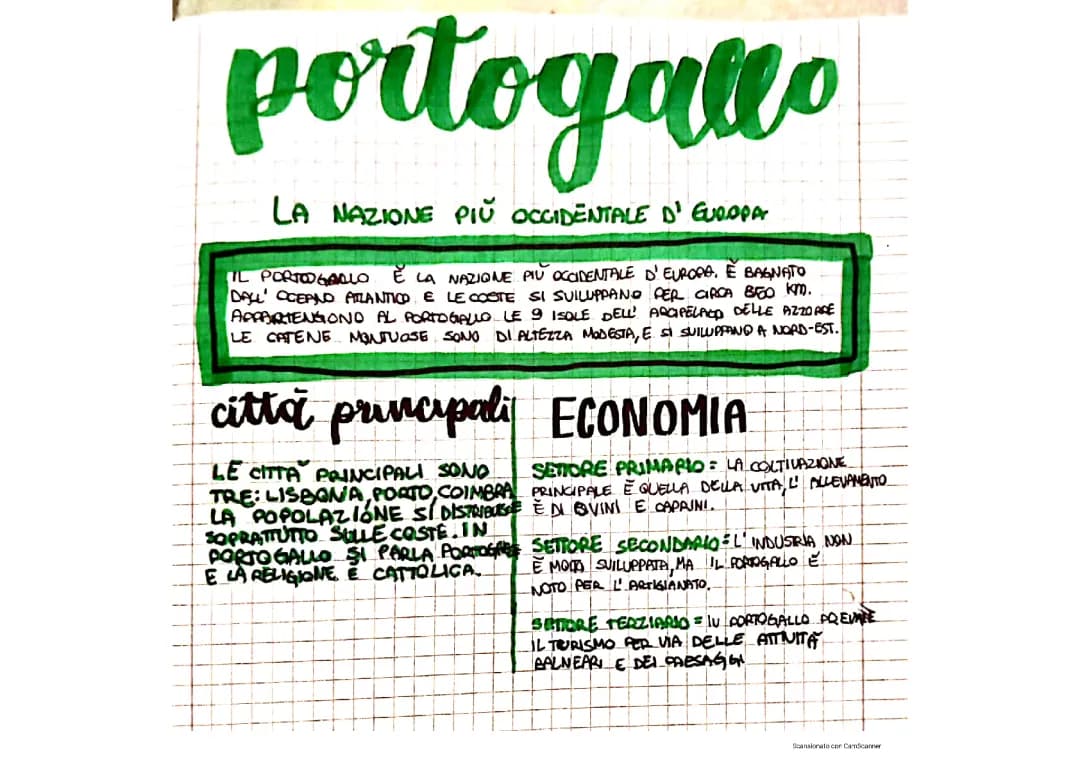 portogallo
LA NAZIONE PIÙ OCCIDENTALE D' EUROPA
IL PORTOGALLO È LA NAZIONE PIÙ OCCIDENTALE D' EUROPA. È BAGNATO
DALL' OCEANO ATLANTICO E LE COSTE SI SVILUPPANO PER CIRCA 850 KM.
APPARTENGONO AL PORTOGALLO LE 9 ISOLE DELL' ARCIPELAGO DELLE AZZORRE
LE CATENE MONTUOSE SONO DI ALTEZZA MODESTA, E SI SVILUPPANO A NORD-EST.
città principali
LE CITTÀ PRINCIPALI SONO
TRE: LISBONA, PORTO, COIMBRA
LA POPOLAZIONE SI DISTRIBUISCE
SOPRATTUTTO SULLE COSTE. IN
PORTOGALLO SI PARLA PORTOGHESE
E LA RELIGIONE È CATTOLICA.
ECONOMIA
SETTORE PRIMARIO = LA COLTIVAZIONE
PRINCIPALE È QUELLA DELLA VITA, L' ALLEVAMENTO
È DI OVINI E CAPRINI.
SETTORE SECONDARIO = L' INDUSTRIA NON
È MOLTO SVILUPPATA, MA IL PORTOGALLO È
NOTO PER L' ARTIGIANATO.
SETTORE TERZIARIO = IN PORTOGALLO PREVALE
IL TURISMO PER VIA DELLE ATTIVITÀ
BALNEARI E DEI PAESAGGI
Scansionato con CamScanner